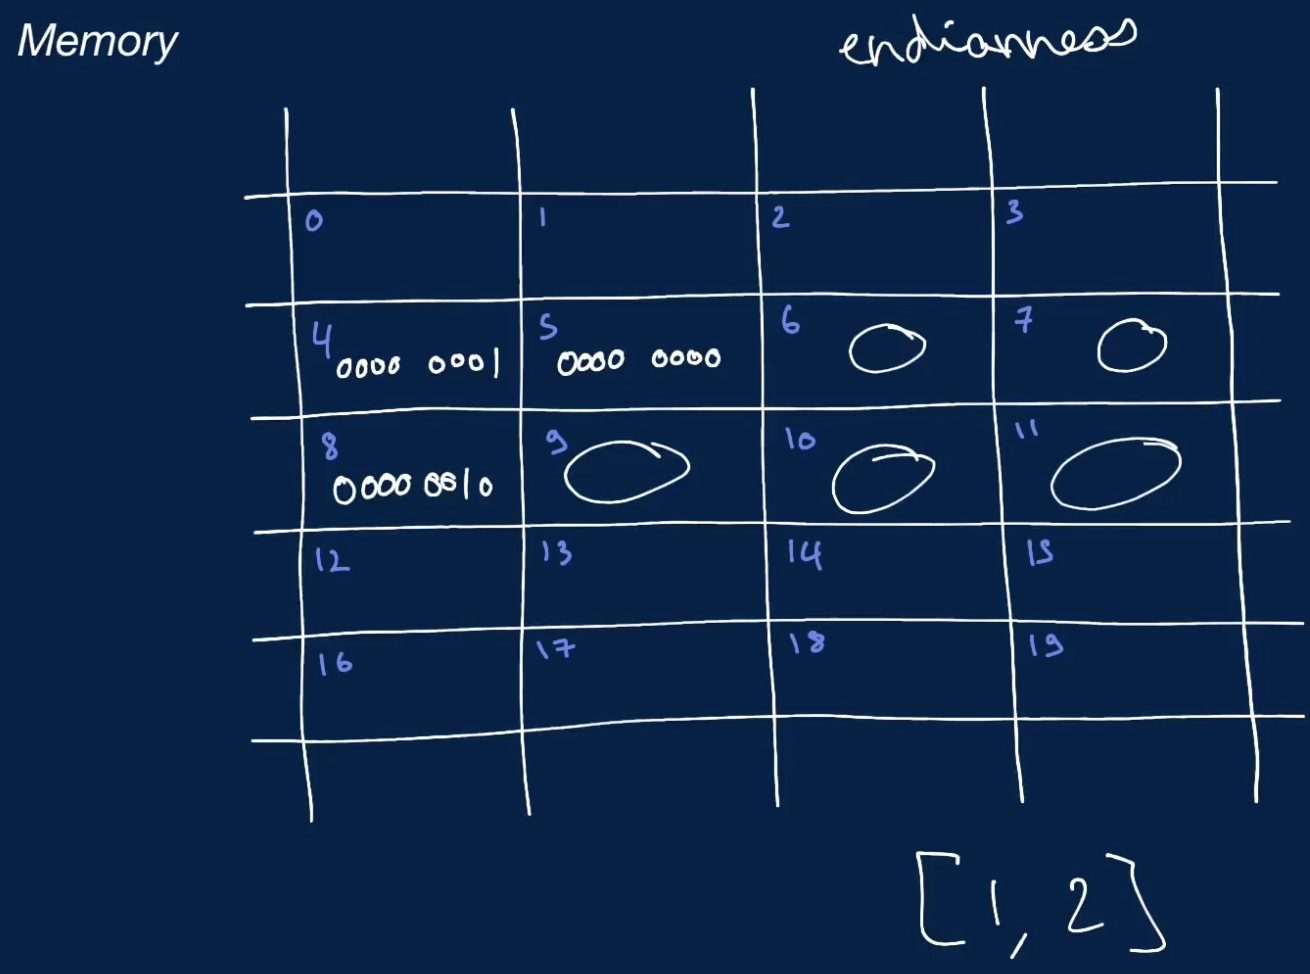 Memory
endianness
0 1 2 3
4 5 6 7
0000 0001 0000 0000 0 0
8 9 10 11
0000 0010 0 0 0
12 13 14 15
16 17 18 19
[1, 2]